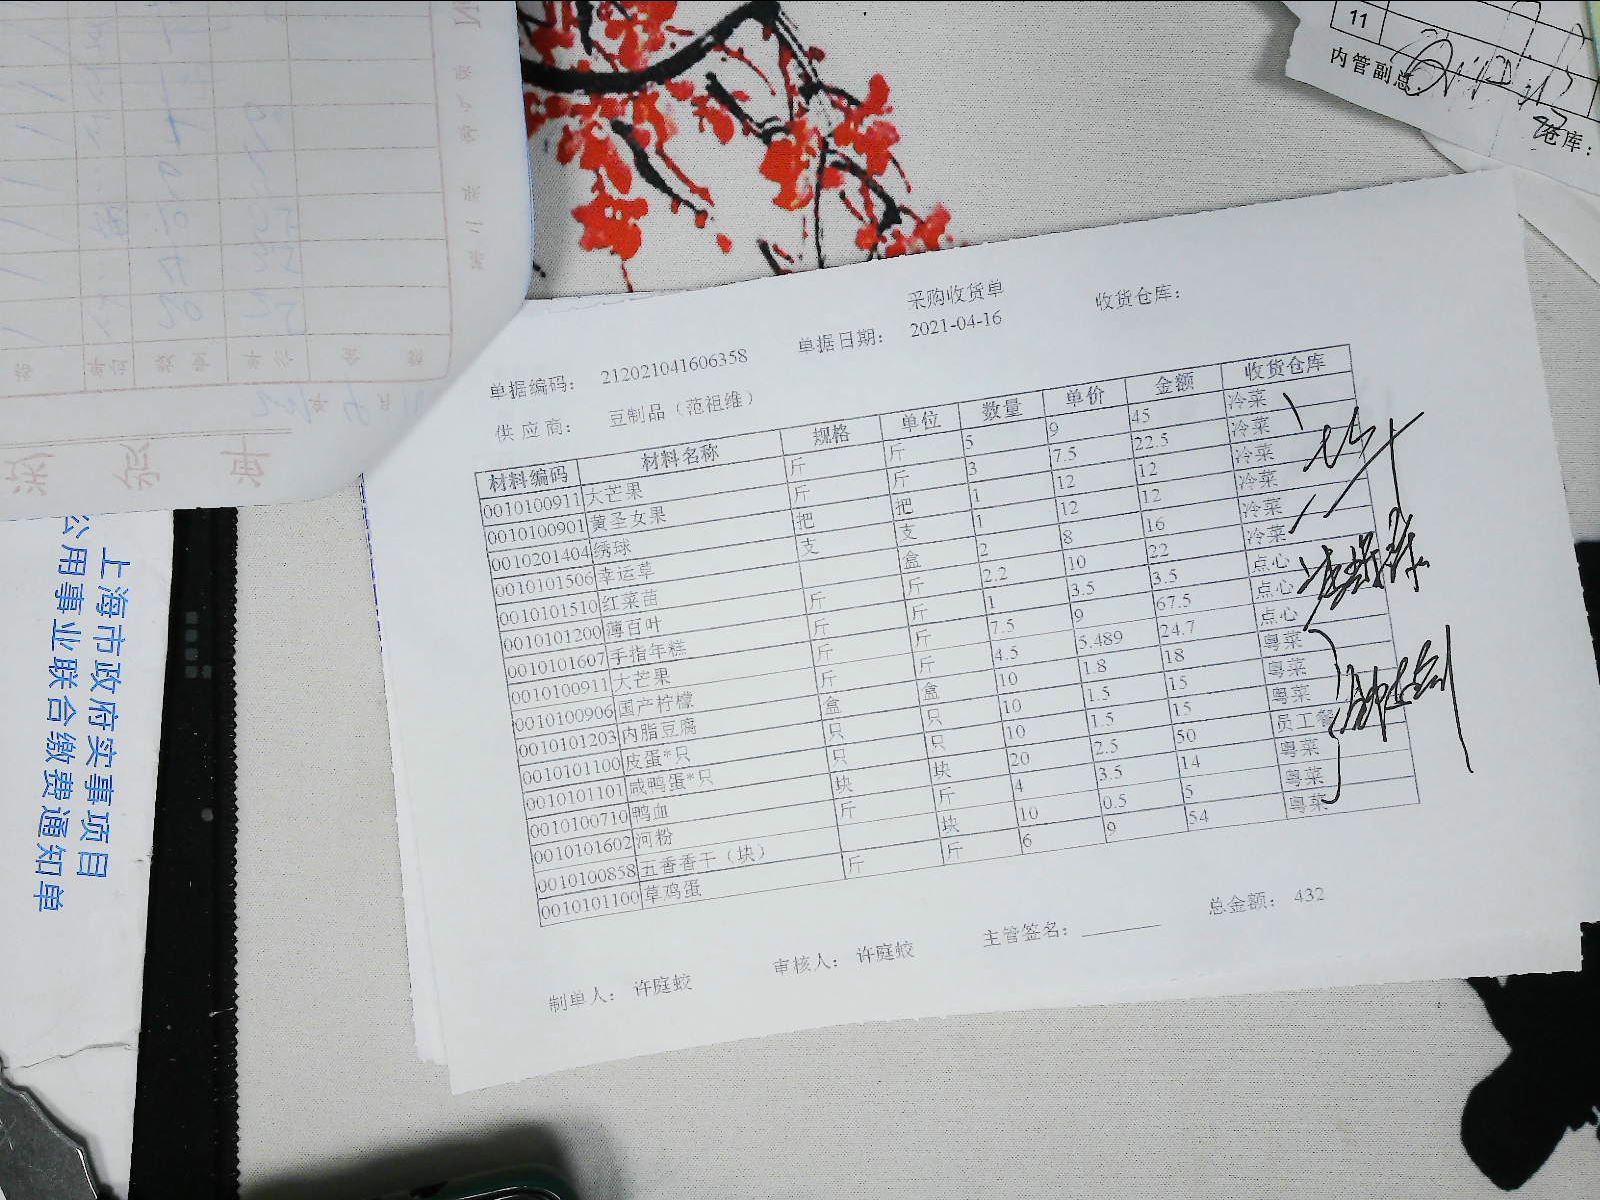 11
内管副总:
仓库:
采购收货单
单据编码: 212021041606358 单据日期: 2021-04-16 收货仓库:
供应商: 豆制品（范祖维）
材料编码 材料名称 规格 单位 数量 单价 金额 收货仓库
0010100911 大芒果 斤 斤 5 9 45 冷菜
0010100901 黄圣女果 斤 斤 3 7.5 22.5 冷菜
0010201404 绣球 把 把 1 12 12 冷菜
0010101506 幸运草 支 支 1 12 12 冷菜
0010101510 红菜苗 盒 2 8 16 冷菜
0010101200 薄百叶 斤 斤 2.2 10 22 冷菜
0010101607 手指年糕 斤 斤 1 3.5 3.5 点心
0010100911 大芒果 斤 斤 7.5 9 67.5 点心
0010100906 国产柠檬 斤 斤 4.5 5.489 24.7 点心
0010101203 内脂豆腐 盒 盒 10 1.8 18 粤菜
0010101100 皮蛋*只 只 只 10 1.5 15 粤菜
0010101101 咸鸭蛋*只 只 只 10 1.5 15 粤菜
0010100710 鸭血 块 块 20 2.5 50 员工餐
0010101602 河粉 斤 斤 4 3.5 14 粤菜
0010100858 五香香干（块） 块 10 0.5 5 粤菜
0010101100 草鸡蛋 斤 斤 6 9 54 粤菜
制单人: 许庭蛟 审核人: 许庭蛟 主管签名: 总金额: 432
上海市政府实事项目
公用事业联合缴费通知单